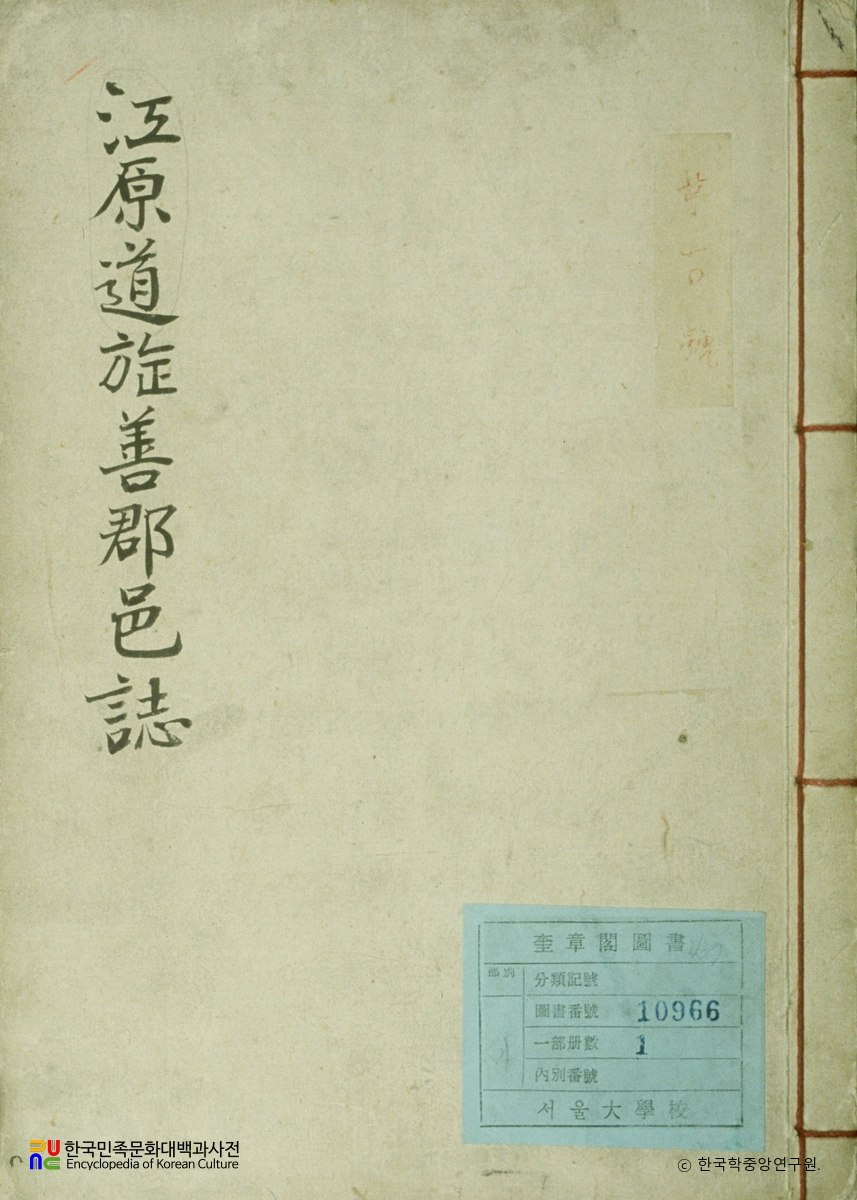 江原道旌善郡邑誌
第一〇號
奎章閣圖書
部別
分類記號
圖書番號 10966
一部册數 1
內別番號
서울大學校
한국민족문화대백과사전
Encyclopedia of Korean Culture
© 한국학중앙연구원.